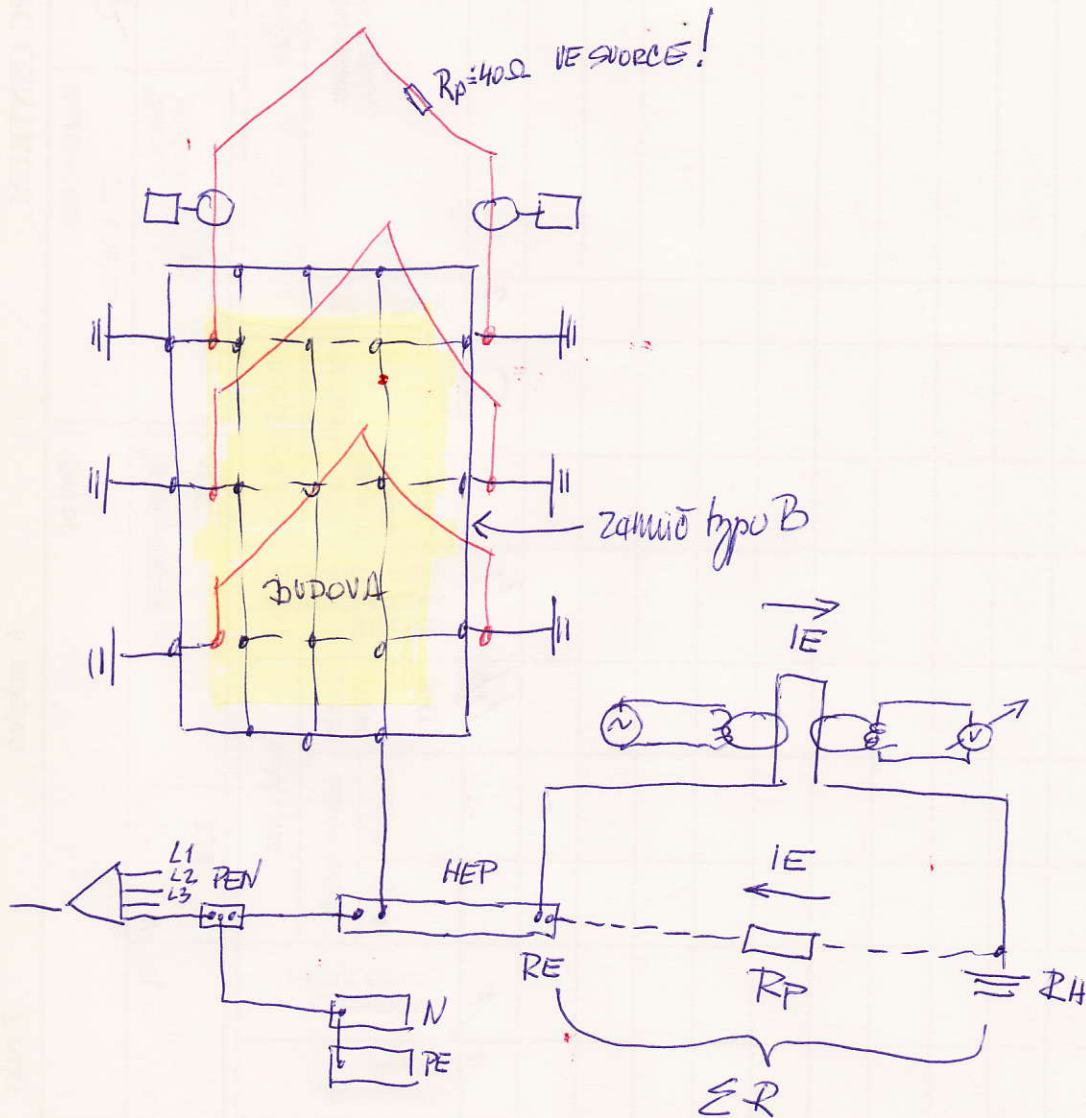 Rp≐40Ω VE SVORCE!
zemnič typu B
BUDOVA
IE
L1
L2
L3
PEN
HEP
IE
RE
RP
RH
N
PE
ΣR
V